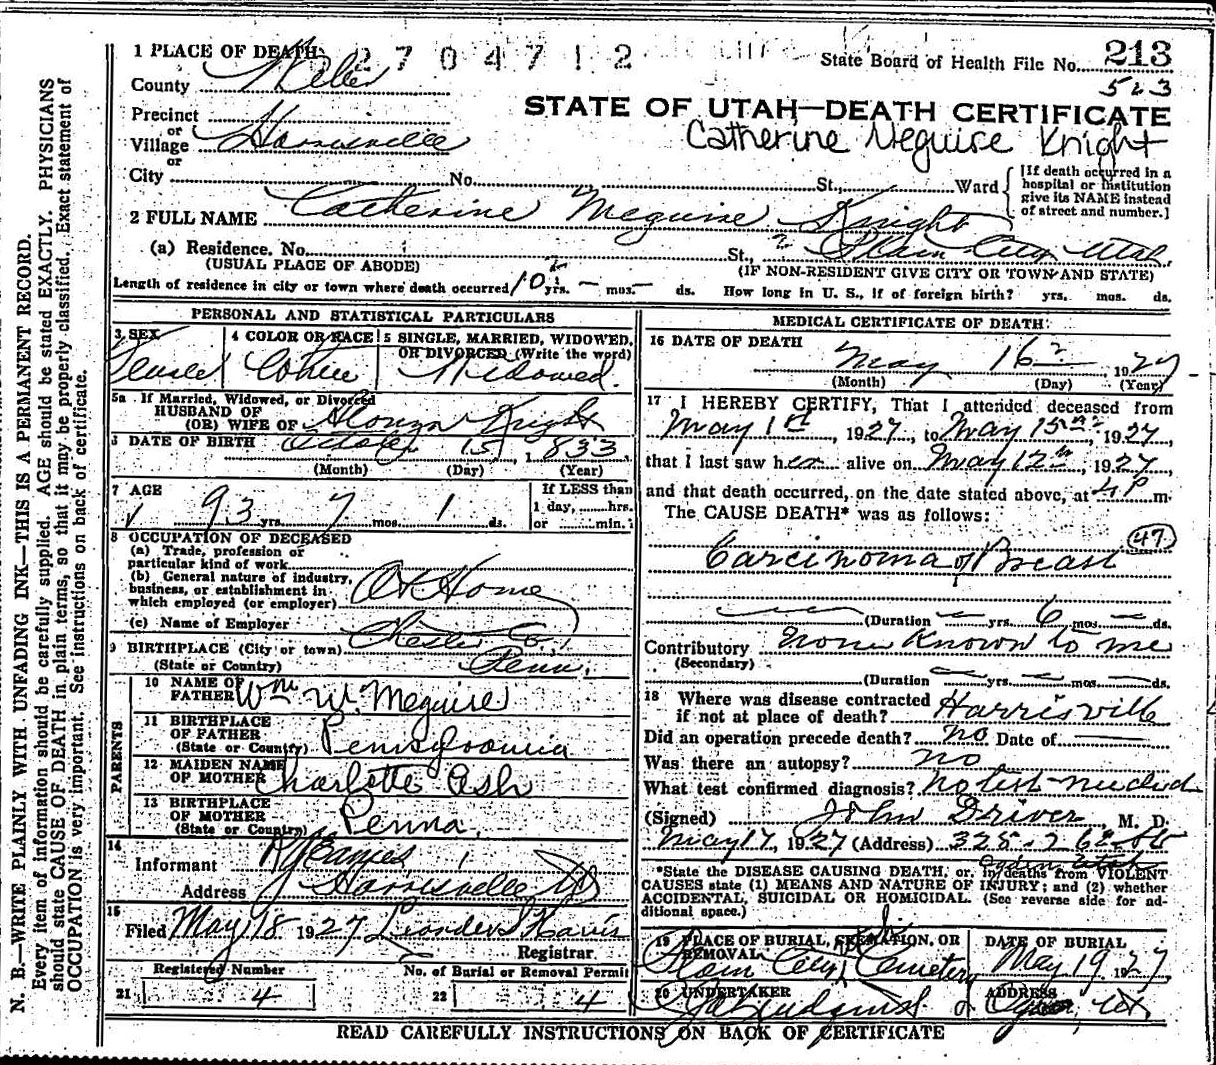 1 PLACE OF DEATH 2704712
State Board of Health File No. 213
County Weber
523
STATE OF UTAH—DEATH CERTIFICATE
Precinct
or
Village Harrisville
Catherine Meguire Knight
or
City No. St., Ward
[If death occurred in a
hospital or institution
give its NAME instead
of street and number.]
2 FULL NAME Catherine Meguire Knight
(a) Residence. No. St., Plain City Utah.
(USUAL PLACE OF ABODE) (IF NON-RESIDENT GIVE CITY OR TOWN AND STATE)
Length of residence in city or town where death occurred yrs. — mos. — ds. How long in U. S., if of foreign birth? yrs. mos. ds.
PERSONAL AND STATISTICAL PARTICULARS
3 SEX Female
4 COLOR OR RACE White
5 SINGLE, MARRIED, WIDOWED,
OR DIVORCED (Write the word)
Widowed.
5a If Married, Widowed, or Divorced
HUSBAND OF
(OR) WIFE OF Alonzo Knight
6 DATE OF BIRTH October 15, 1833
(Month) (Day) (Year)
7 AGE
93 yrs. 7 mos. 1 ds.
If LESS than
1 day, hrs.
or min.
8 OCCUPATION OF DECEASED
(a) Trade, profession or
particular kind of work
(b) General nature of industry,
business, or establishment in
which employed (or employer) At Home
(c) Name of Employer
9 BIRTHPLACE (City or town) Chester Co.,
(State or Country) Penn.
PARENTS
10 NAME OF
FATHER Wm W. Meguire
11 BIRTHPLACE
OF FATHER
(State or County) Pennsylvania
12 MAIDEN NAME
OF MOTHER Charlotte Ash
13 BIRTHPLACE
OF MOTHER
(State or Country) Penna.
14
Informant
Address Harrisville
15
Filed May 18 1927
Registrar
Registered Number
21 4
No. of Burial or Removal Permit
22 4
MEDICAL CERTIFICATE OF DEATH
16 DATE OF DEATH
May 16 1927
(Month) (Day) (Year)
17 I HEREBY CERTIFY, That I attended deceased from
May 1st, 1927, to May 15, 1927,
that I last saw her alive on May 12th, 1927,
and that death occurred, on the date stated above, at 4 P m.
The CAUSE DEATH* was as follows:
47
Carcinoma of Breast
(Duration — yrs. 6 mos. — ds.
Contributory None Known to me
(Secondary)
(Duration — yrs. — mos. — ds.
18 Where was disease contracted
if not at place of death? Harrisville
Did an operation precede death? No Date of —
Was there an autopsy? No
What test confirmed diagnosis? No test needed
(Signed) John Driver, M. D.
May 17, 1927 (Address)
Ogden Utah
*State the DISEASE CAUSING DEATH, or, in deaths from VIOLENT
CAUSES state (1) MEANS AND NATURE OF INJURY; and (2) whether
ACCIDENTAL, SUICIDAL OR HOMICIDAL. (See reverse side for ad-
ditional space.)
19 PLACE OF BURIAL, CREMATION, OR
REMOVAL
Plain City Cemetery
DATE OF BURIAL
May 19, 1927
20 UNDERTAKER
ADDRESS
READ CAREFULLY INSTRUCTIONS ON BACK OF CERTIFICATE
N. B.—WRITE PLAINLY WITH UNFADING INK—THIS IS A PERMANENT RECORD.
Every item of information should be carefully supplied. AGE should be stated EXACTLY. PHYSICIANS
should state CAUSE OF DEATH in plain terms, so that it may be properly classified. Exact statement of
OCCUPATION is very important. See instructions on back of certificate.